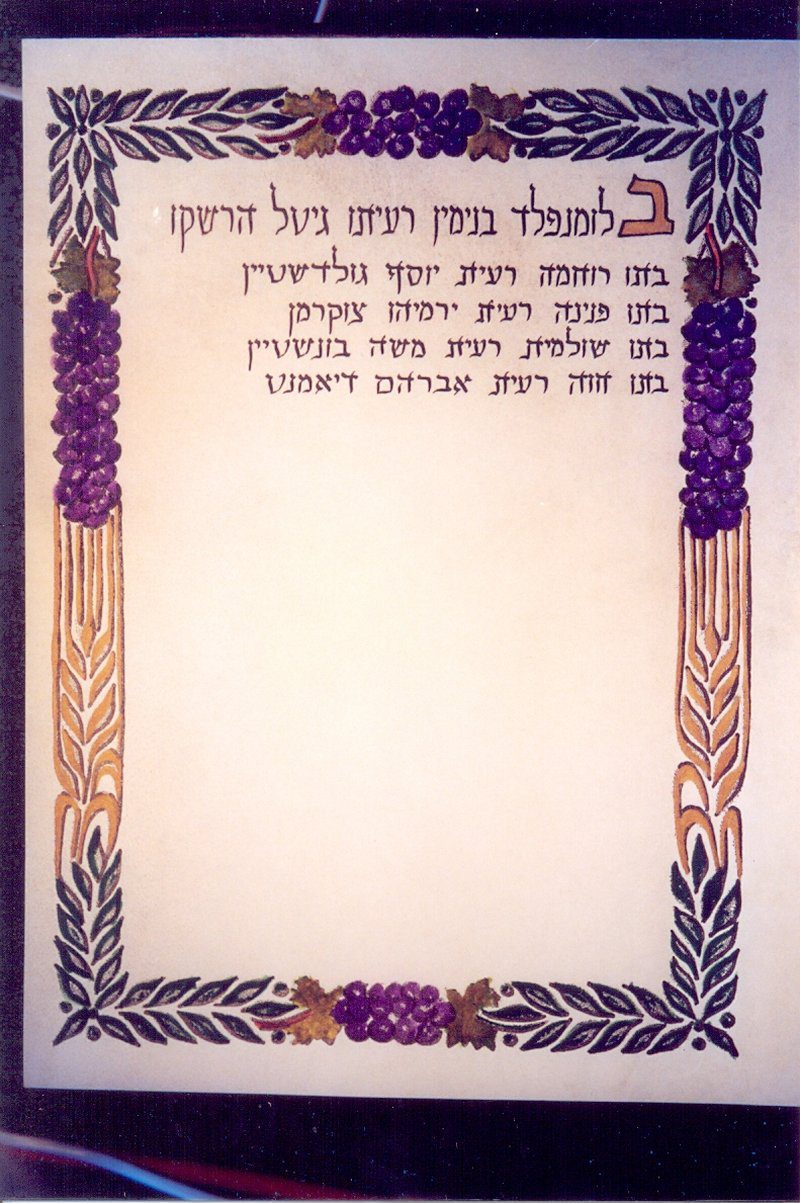 בלומנפלד בנימין רעיתו גיטל הרשקו
בתו רוחמה רעית יוסף גולדשטיין
בתו פנינה רעית ירמיהו צוקרמן
בתו שולמית רעית משה בזנשטיין
בתו חוה רעית אברהם דיאמנט